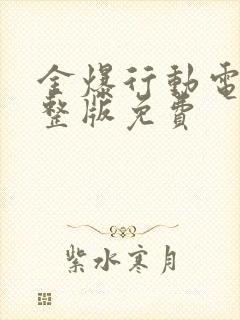 金爆行動電
整版免費
紫水寒月